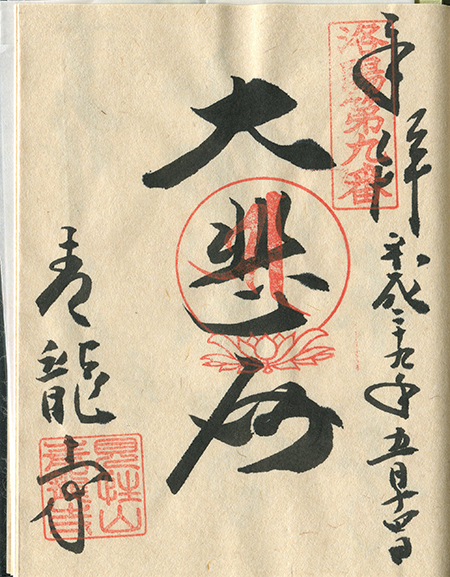 奉拝
平成二十九年五月十四日
洛陽第九番
大悲殿
青龍寺
見性山
青龍寺